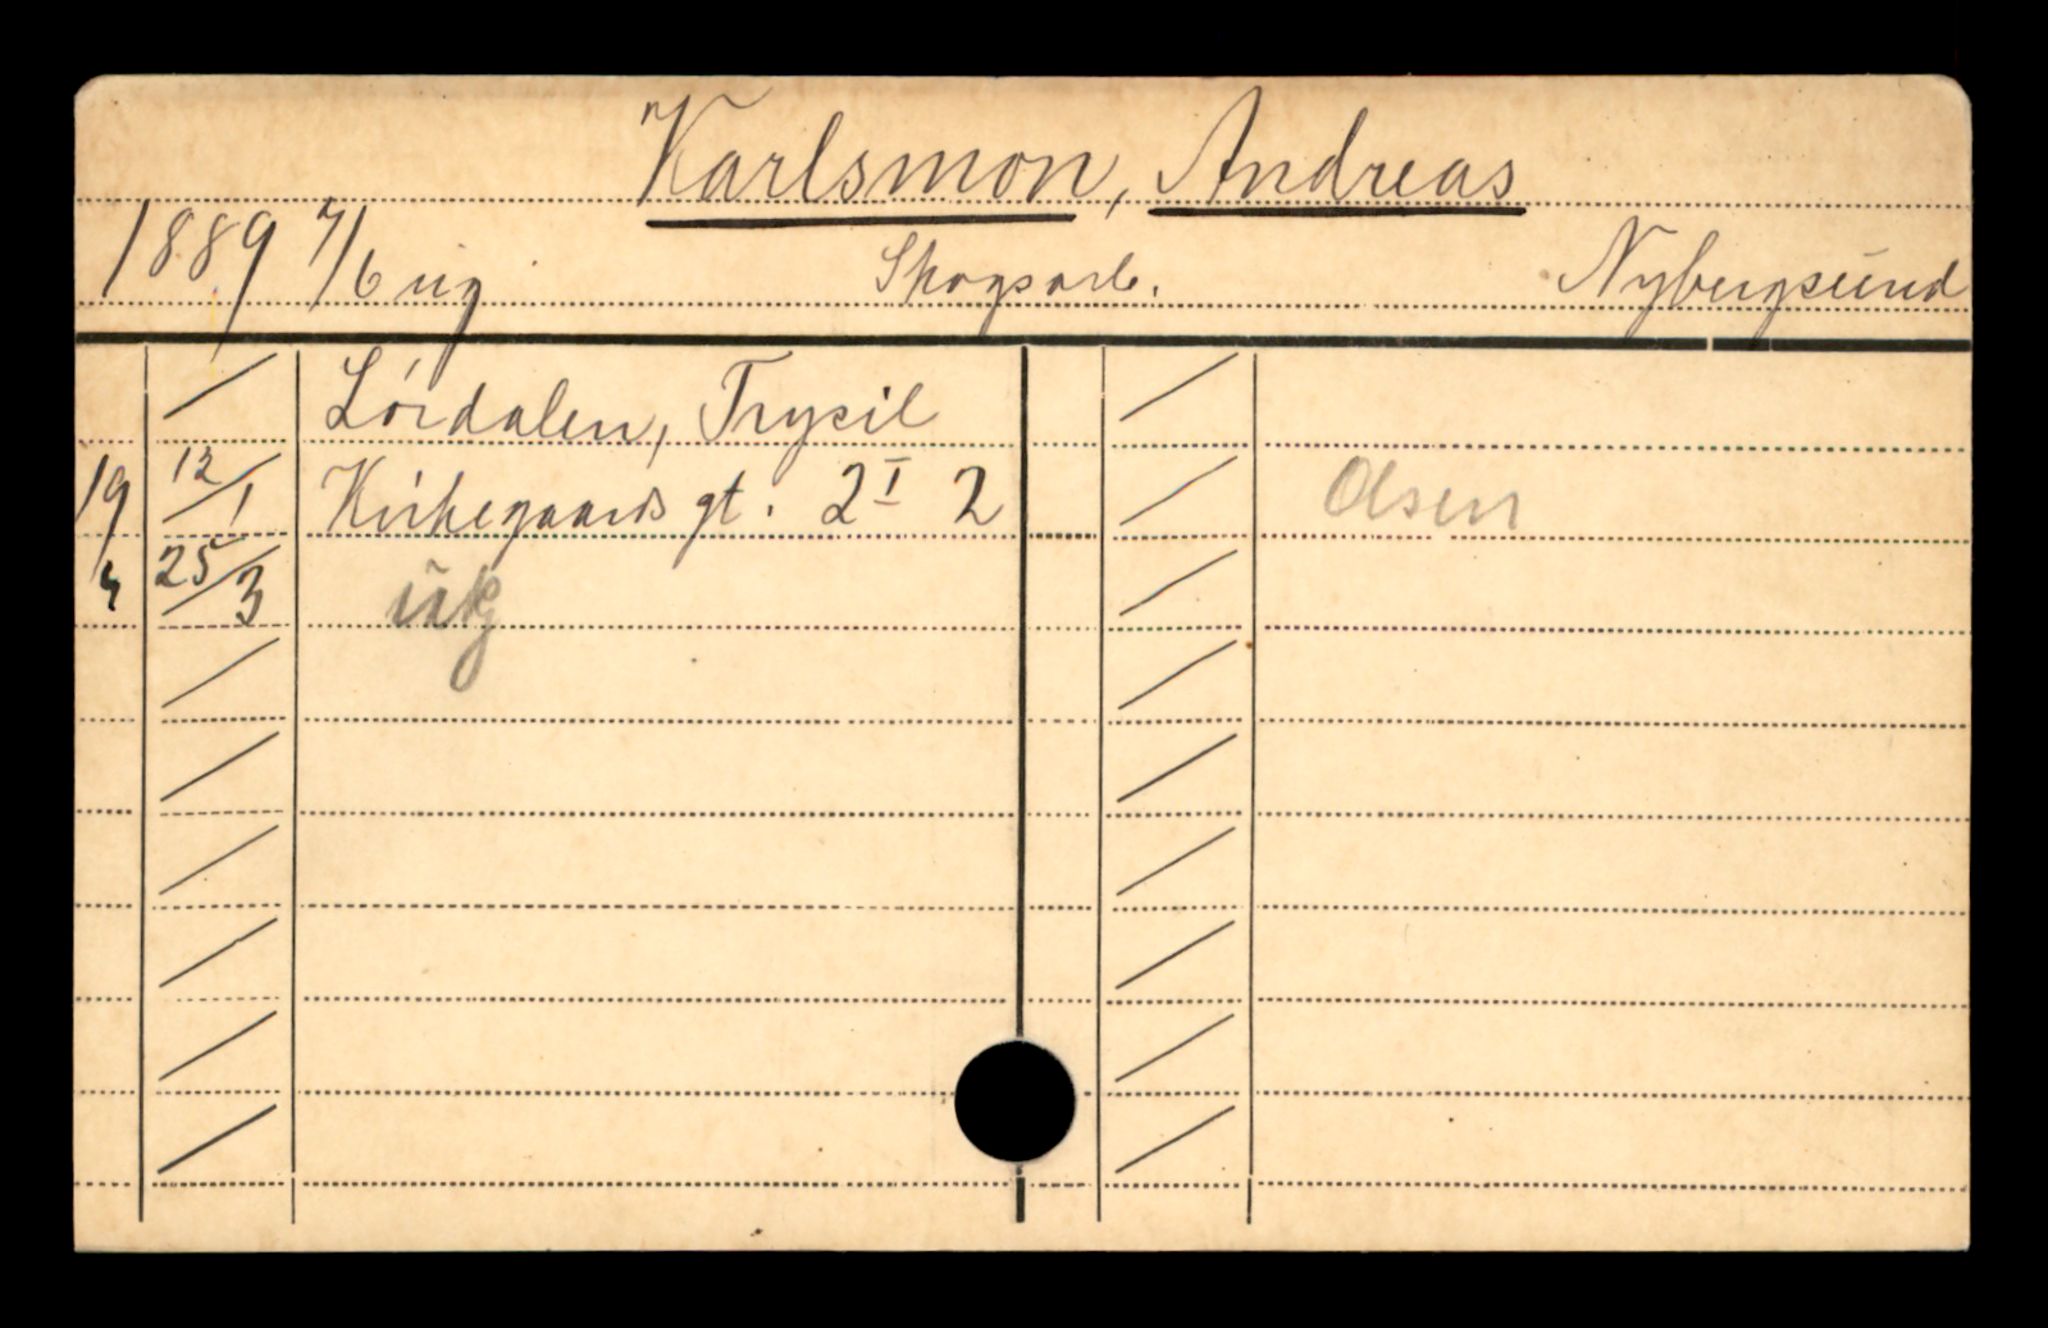 Karlsmon, Andreas
1889 7/6 ug Skogsarb. Nybergsund
Lørdalen, Trysil
19 12/1 Kirkegaards gt. 2 I 2 Olsen
4 25/3